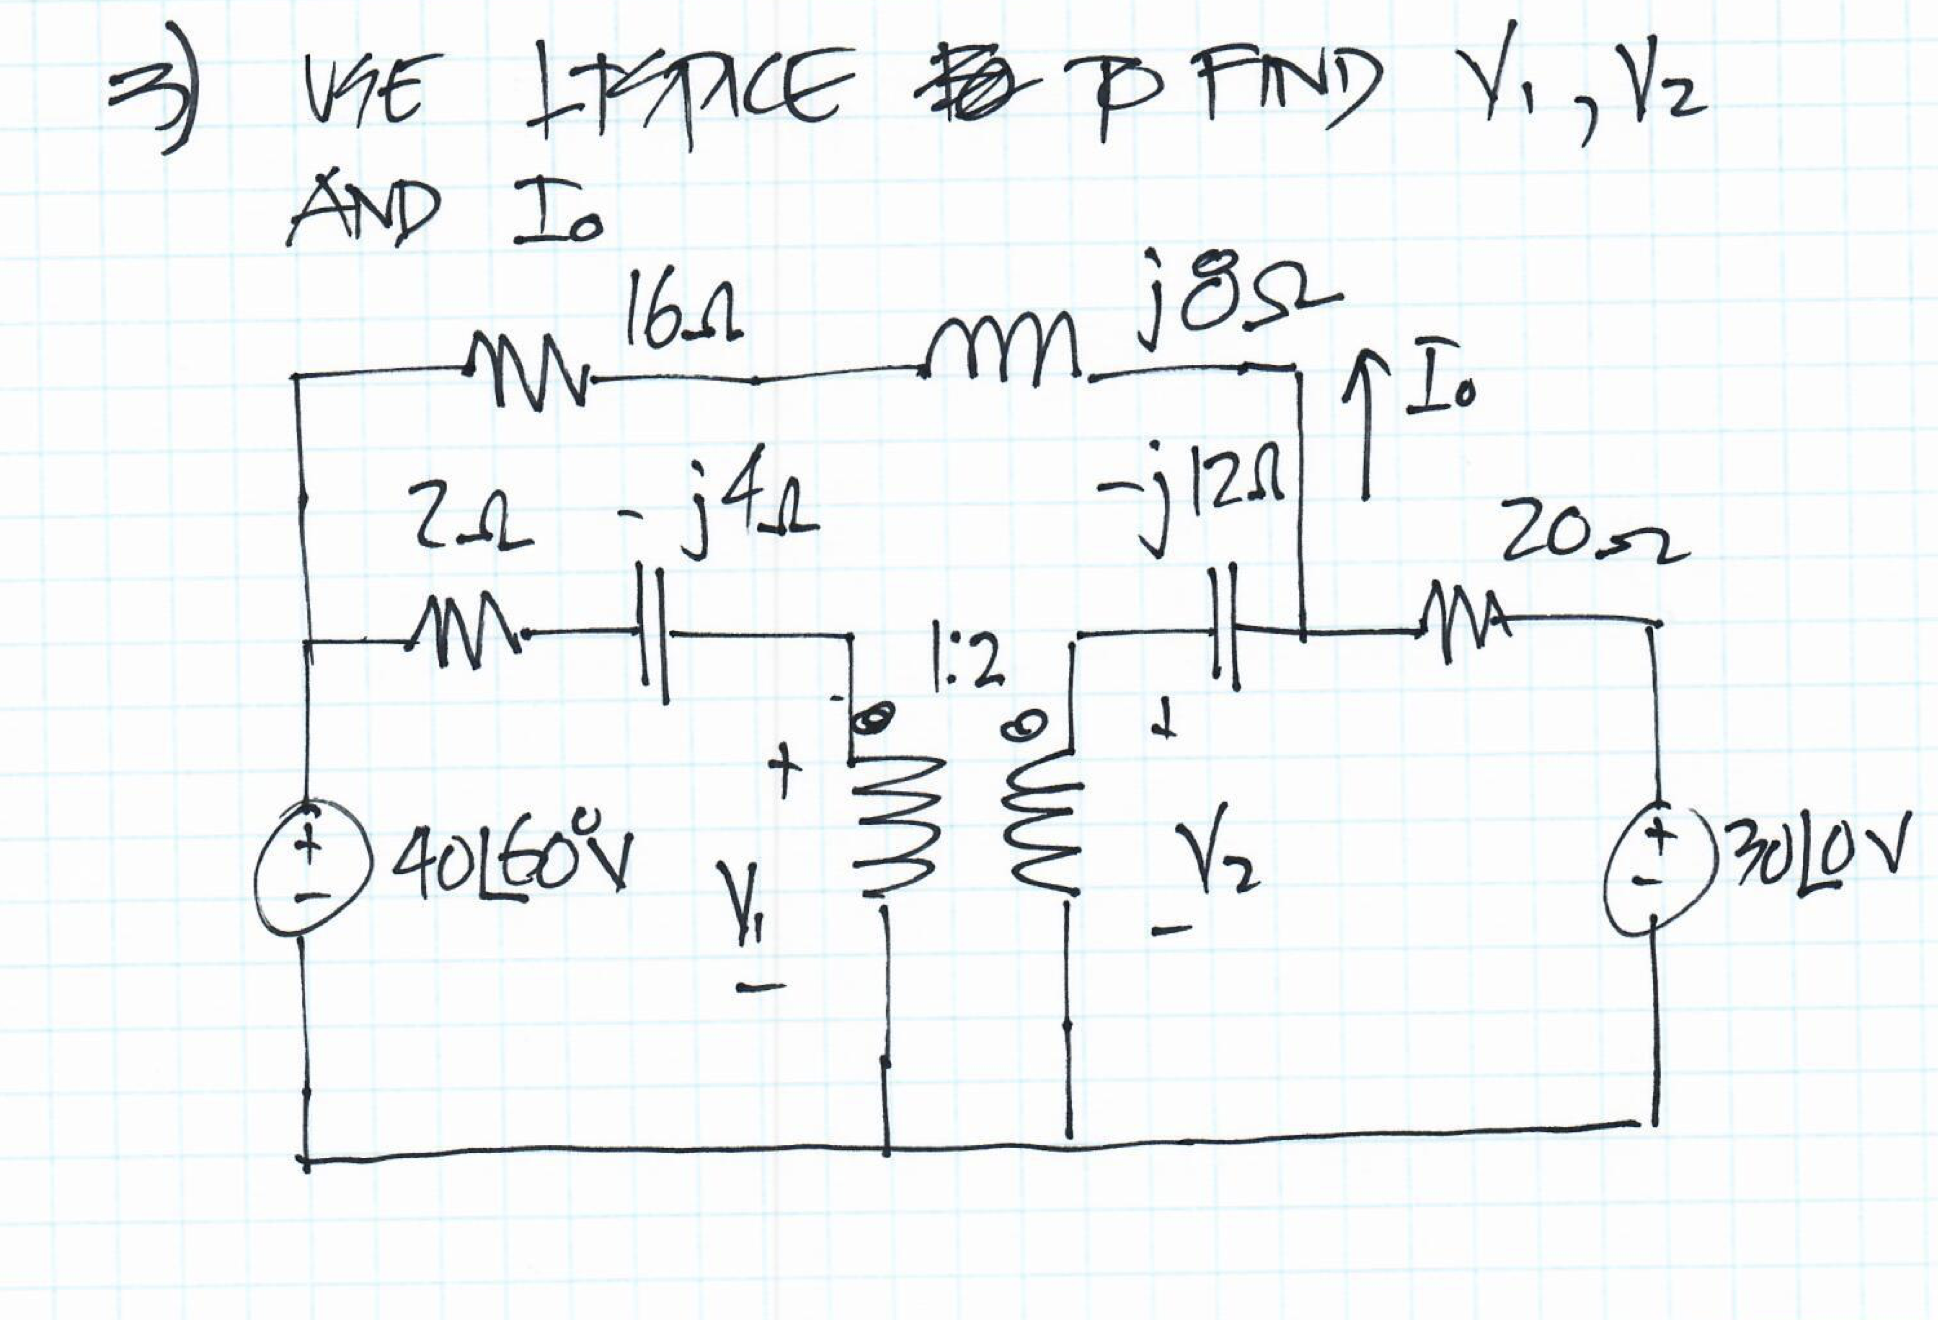 3) USE LTSPICE TO FIND V1, V2
AND Io
16Ω
j8Ω
Io
2Ω
-j4Ω
-j12Ω
20Ω
1:2
+
+
+
-
40∠60°V
V1
-
V2
-
+
-
30∠0V